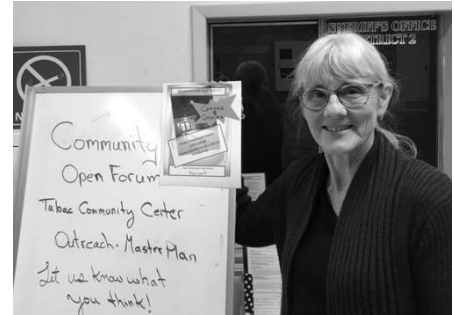 SHERIFF'S OFFICE
DISTRICT 2
Community
Open Forum
Tubac Community Center
Outreach. Master Plan
Let us know what
you think!